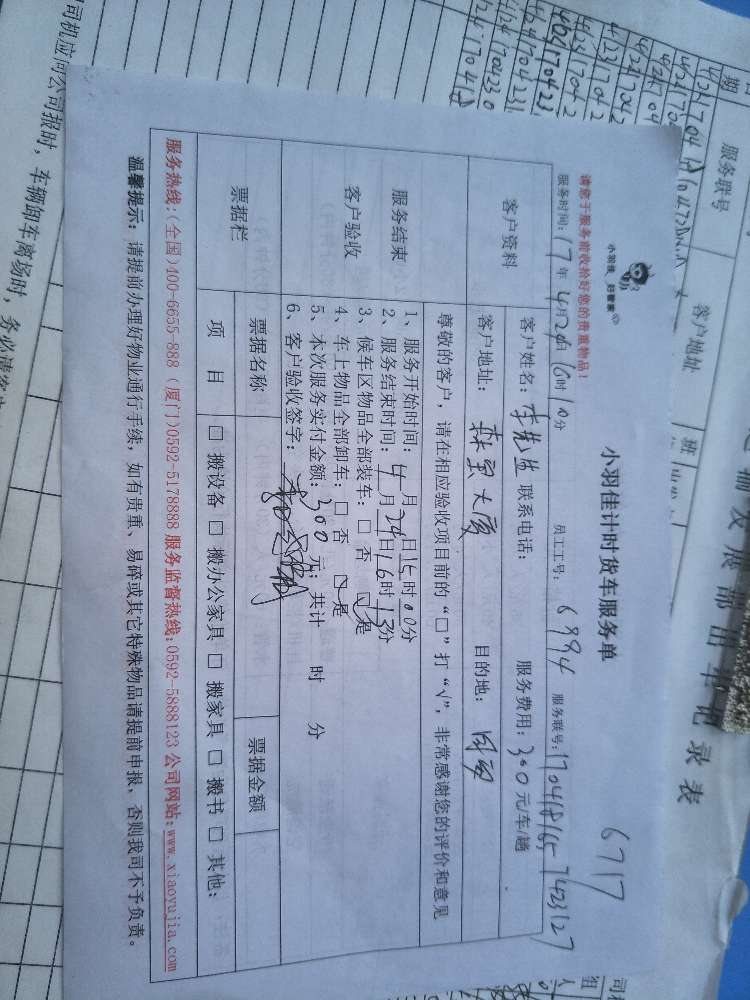 请您于服务前收拾好您的贵重物品!
小羽佳 好管家
小羽佳计时货车服务单
6717
服务时间:17年4月24日16时10分 员工工号:6994 服务联号:170418165 7423127
客户资料
客户姓名:李先生 联系电话: 服务费用:300元车/趟
客户地址: 目的地:同安
服务结束
客户验收
尊敬的客户,请在相应验收项目前的“□”打“√”,非常感谢您的评价和意见
1、服务开始时间: 月 日15时00分
2、服务结束时间:4月24日16时13分
3、候车区物品全部装车:□ 否 ☑是
4、车上物品全部卸车:□ 否 ☑是
5、本次服务实付金额:300元;共计 时 分
6、客户验收签字:
票据栏
票据名称 票据金额
项 目 □ 搬设备 □ 搬办公家具 □ 搬家具 □ 搬书 □ 其他:
服务热线:(全国)400-6655-888 (厦门)0592-5178888 服务监督热线:0592-5888123 公司网站:www.xiaoyujia.com
温馨提示:请提前办理好物业通行手续,如有贵重、易碎或其它特殊物品请提前申报,否则我司不予负责。
服务联号
客户地址
班
出车记录表
司机应向公司报时,车辆卸车离场时,务必请客